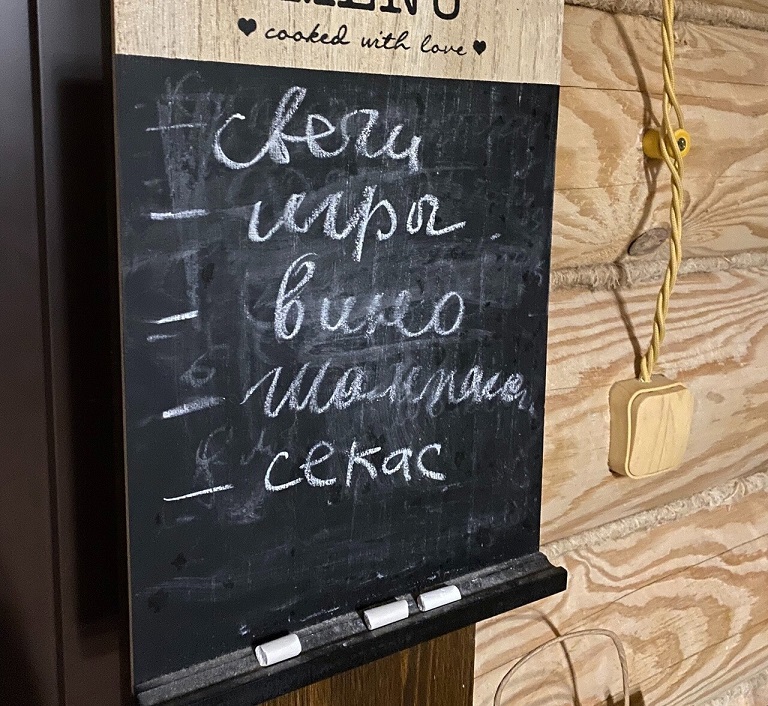 MENU
cooked with love
- свечи
- игры
- вино
- шампанс
- секас